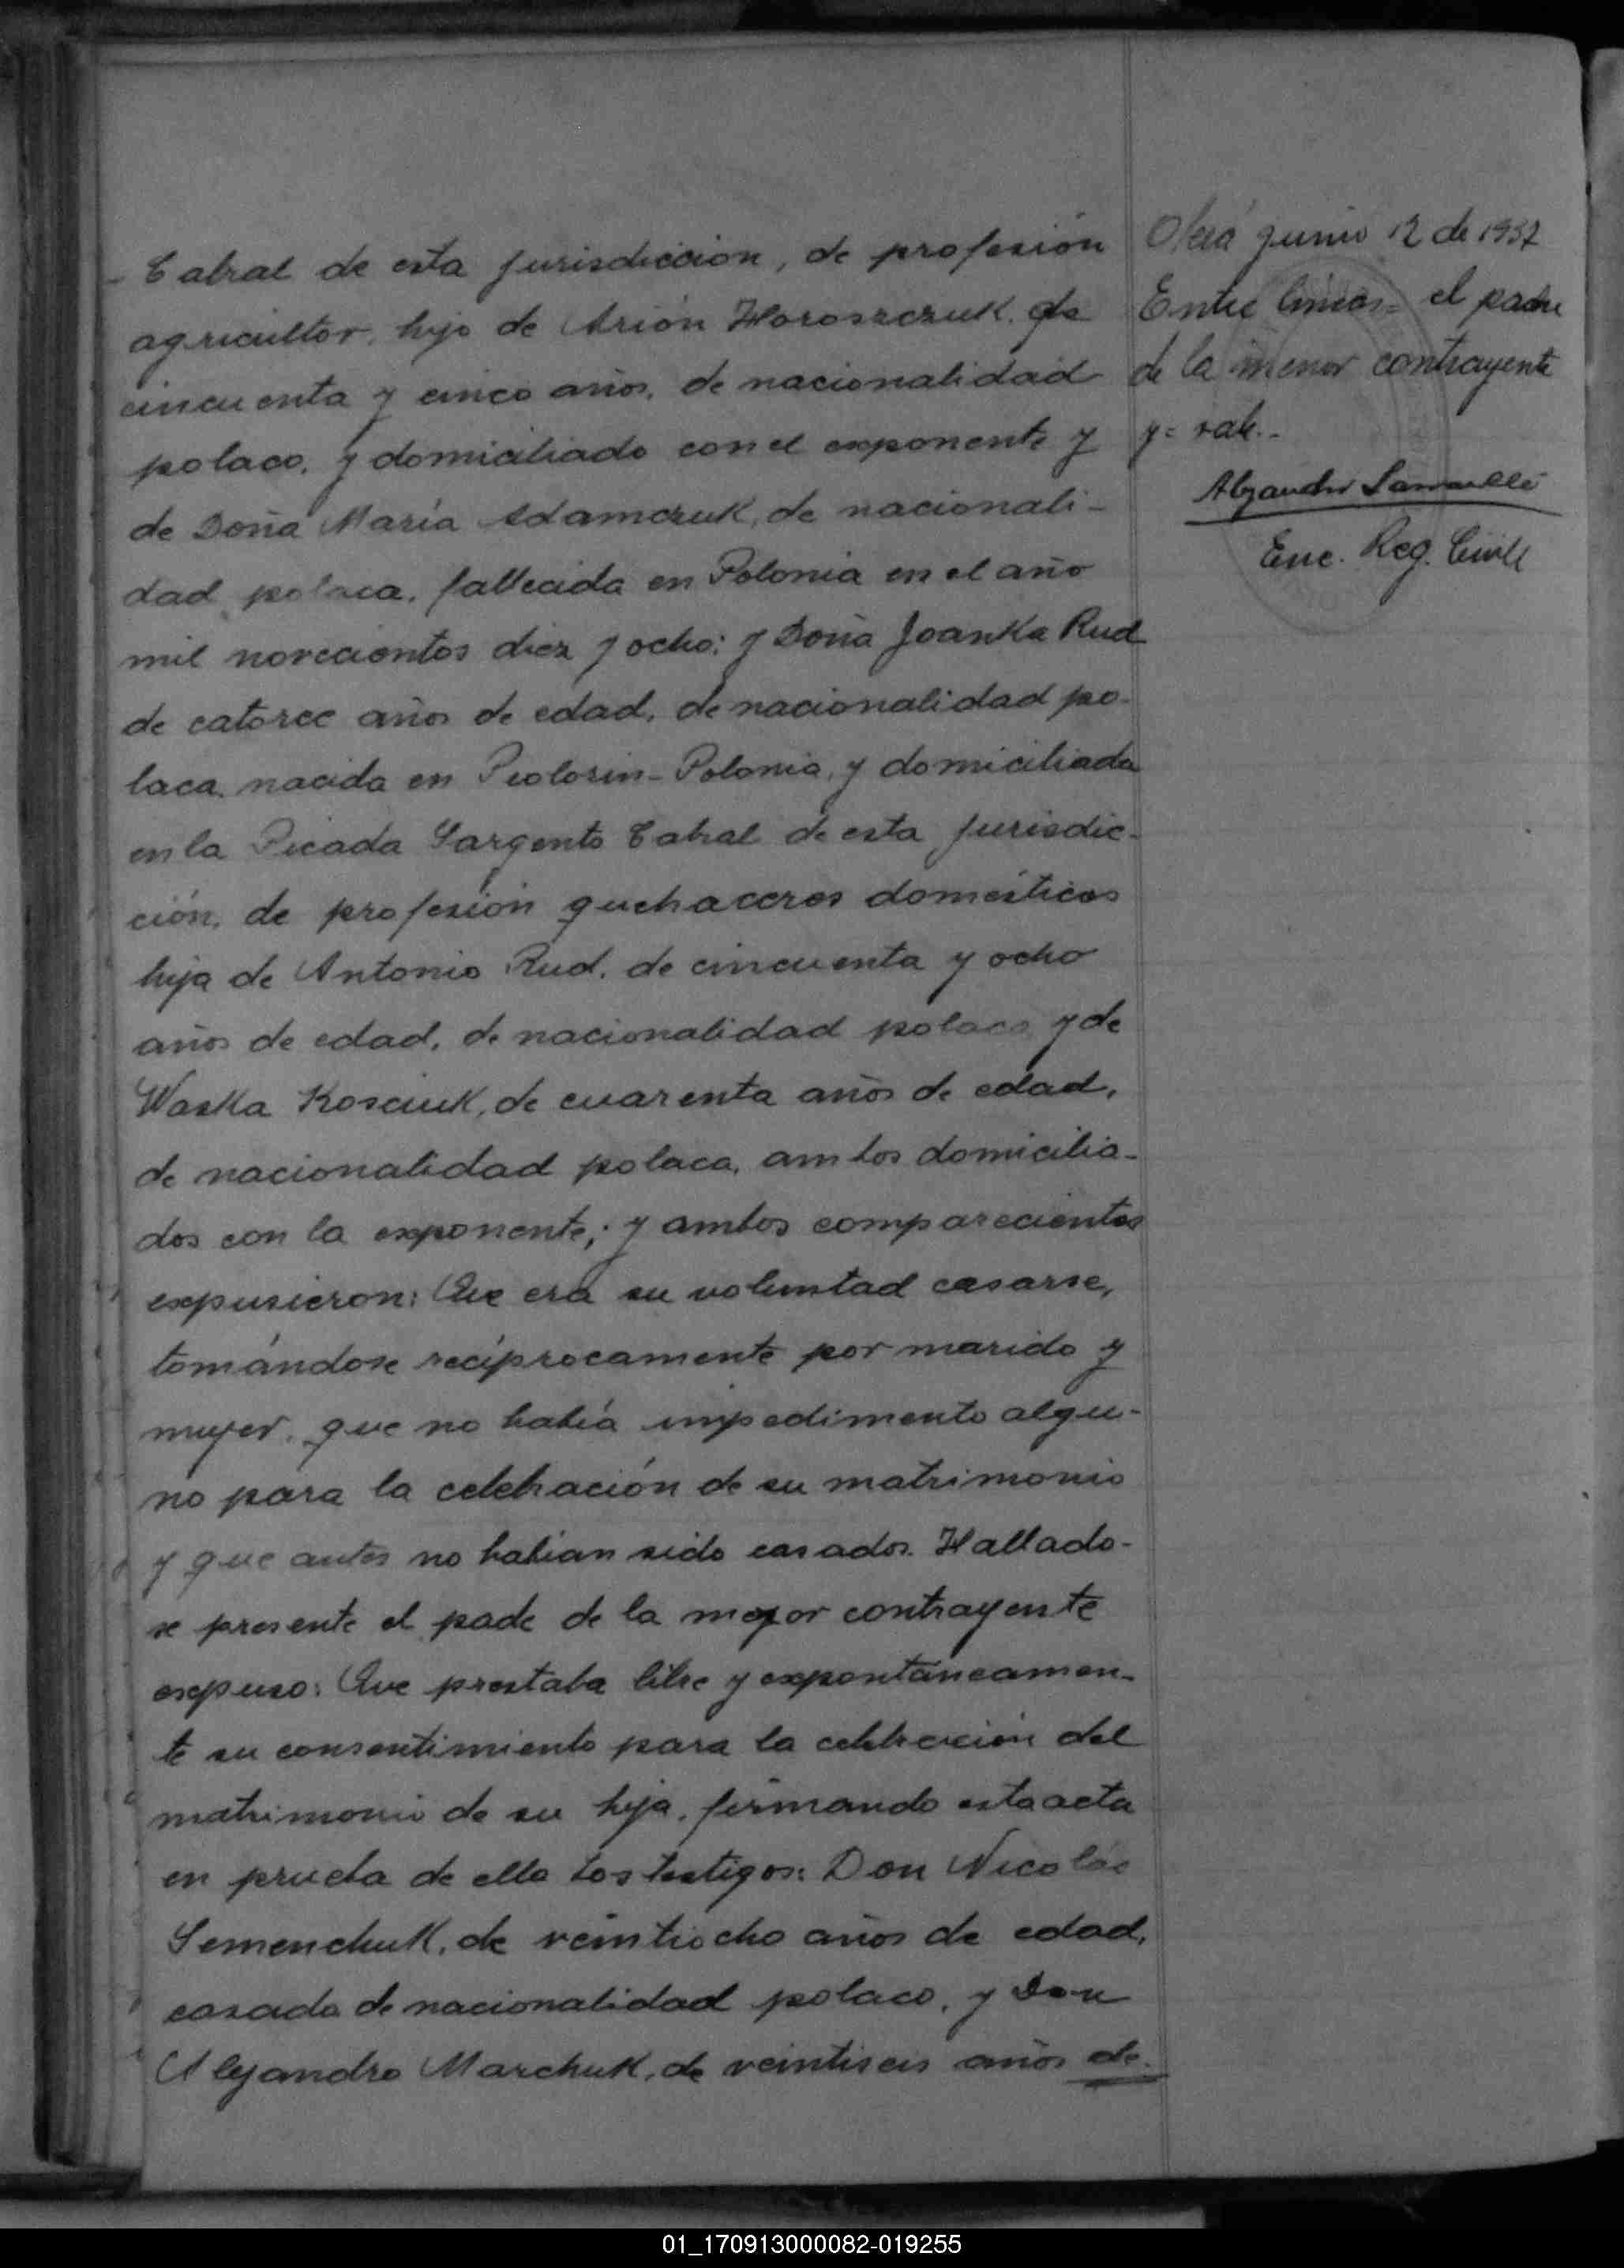 Cabral de esta jurisdiccion, de profesión
agricultor, hijo de Arión Horoszczuk. de
cincuenta y cinco años, de nacionalidad
polaco, y domiciliado con el exponente y
de Doña María Adamczuk, de nacionali-
dad polaca, fallecida en Polonia en el año
mil novecientos diez y ocho; y Doña Joanka Rud
de catorce años de edad, de nacionalidad po-
laca, nacida en Polonia, y domiciliada
en la Picada Sargento Cabral de esta jurisdic-
ción, de profesión quehaceres domésticos
hija de Antonio Rud, de cincuenta y ocho
años de edad, de nacionalidad polaco y de
Waska Kosciuk, de cuarenta años de edad,
de nacionalidad polaca, ambos domicilia-
dos con la exponente; y ambos comparecientes
expusieron: Que era su voluntad casarse,
tomándose recíprocamente por marido y
mujer, que no había impedimento algu-
no para la celebración de su matrimonio
y que antes no habian sido casados. Hallado-
se presente el pade de la contrayente
expuso: Que prestaba libre y expontáneamen-
te su consentimiento para la celebración del
matrimonio de su hija, firmando esta acta
en prueba de ello los testigos: Don Nicolás
Semenchuk, de veintiocho años de edad,
casado de nacionalidad polaco, y Don
Alejandro Marchuk, de veintiseis años de
Oberá junio 12 de 1937
Entre lineas= el padre
de la menor contrayente
y= vale.-
Alejandro
Enc. Reg. Civil
01_170913000082-019255